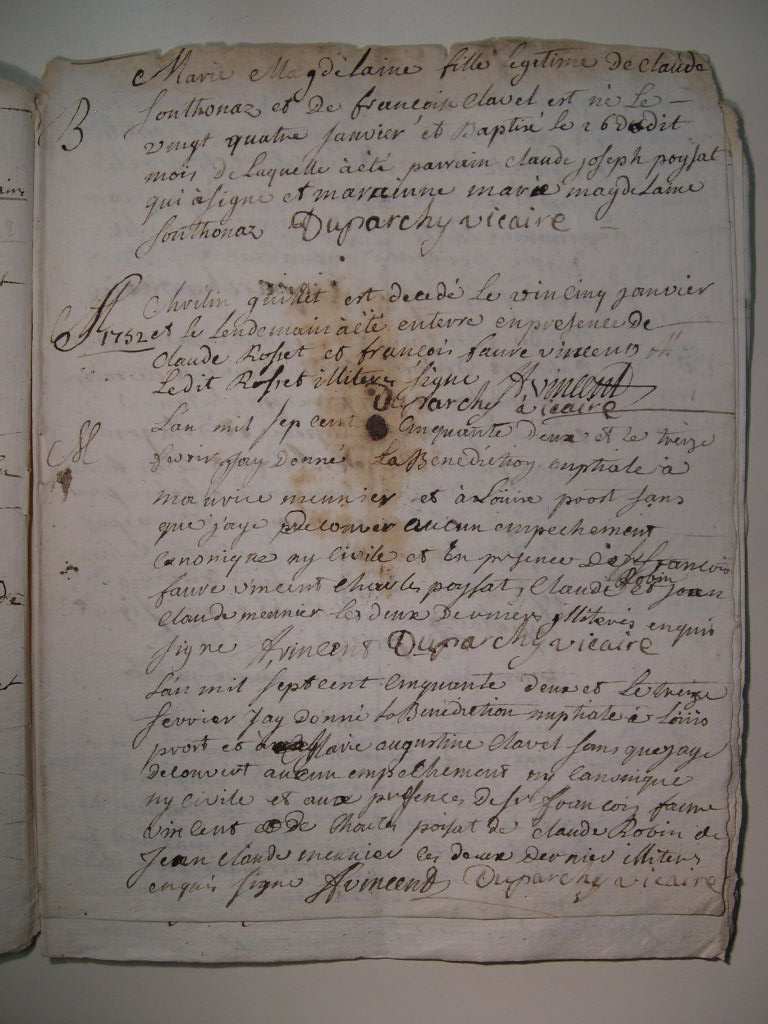 Marie Magdelaine fille legitime de claude
B
Southonaz et De francoise Clavel est né Le
vingt quatre janvier et Baptisé le 26 dudit
mois de laquelle à été parrain Claude joseph poysat
qui à signé et maraine marie magdelaine
Southonaz Duparchy vicaire
est decedé Le vincinq janvier
1752 et le lendemain à été enterre en presence de
Claude Rosset et francois faure vincent
Ledit Rosset illiteré signe A vincent
Duparchy vicaire
Lan mil sep cent Cinquante deux et le treize
M
jay donné La Benediction nuptiale à
maurice meunier et à Loüise prost sans
que j'aye decouver aucun empechement
canonique ny Civile et En presence De sr francois
faure vincent Charles poysat, Claude Robin et jean
Claude meunier les deux Derniers illiterés enquis
signe A vincent Duparchy vicaire
Lan mil sept cent Cinquante deux et Le treize
fevrier Jay Donné La Benediction nuptiale à Loüis
prost et Marie augustine Clavel sans que jaye
decouvert aucun empechement ny canonique
ny civile et aux presences de sr francois faure
vincent de Charles poysat de Claude Robin de
Jean Claude meunier les deux dernier illiterés
enquis signe A vincent Duparchy vicaire